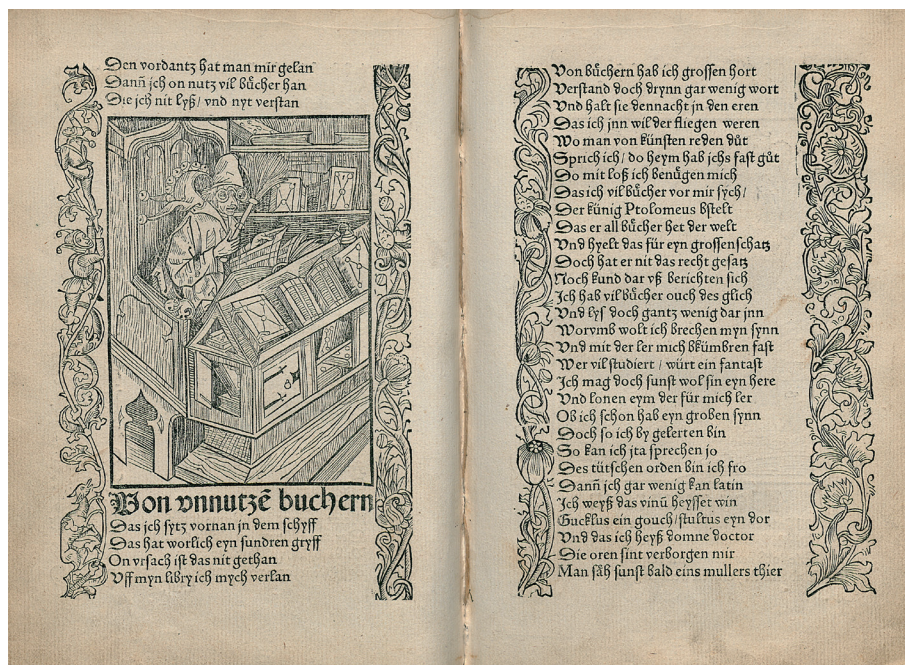 Den vordantz hat man mir gelan
Dañ jch on nutz vil bücher han
Die jch nit lyß/ vnd nyt verstan
Von vnnutzẽ buchern
Das jch sytz vornan jn dem schyff
Das hat worlich eyn sundren gryff
On vrsach ist das nit gethan
Vff myn libry ich mych verlan
Von büchern hab ich grossen hort
Verstand doch drynn gar wenig wort
Vnd halt sie dennacht jn den eren
Das ich jnn wil der fliegen weren
Wo man von künsten reden důt
Sprich ich/ do heym hab jchs fast gůt
Do mit loß ich benůgen mich
Das ich vil bücher vor mir sych/
Der künig Ptolomeus bstelt
Das er all bücher het der welt
Vnd hyelt das für eyn grossen schatz
Doch hat er nit das recht gesatz
Noch kund dar vß berichten sich
Jch hab vil bücher ouch des glich
Vnd lys doch gantz wenig dar jnn
Worvmb wolt ich brechen myn synn
Vnd mit der ler mich bkümbren fast
Wer vil studiert / würt ein fantast
Jch mag doch sunst wol sin eyn here
Vnd lonen eym der für mich ler
Ob ich schon hab eyn groben synn
Doch so ich by gelerten bin
So kan ich jta sprechen jo
Des tütschen orden bin ich fro
Dañ jch gar wenig kan latin
Jch weyß das vinū heysset win
Gucklus ein gouch/ stultus eyn dor
Vnd das ich heyß domne doctor
Die oren sint verborgen mir
Man säh sunst bald eins mullers thier